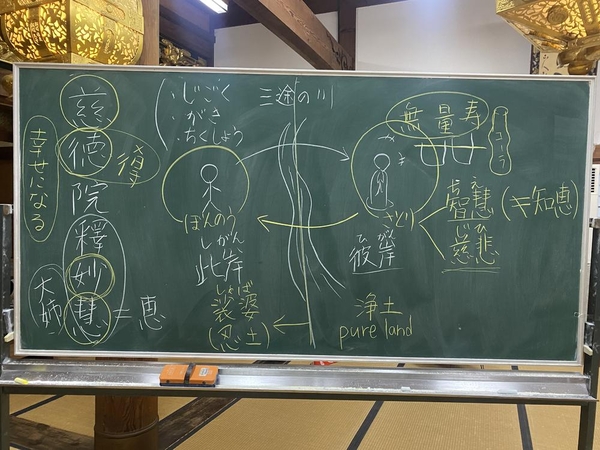 幸せになる
慈徳院釋妙慧
得
大姉
= 恵
・じごく
・がき
・ちくしょう
三途の川
ぼんのう
しがん
此岸
しゃば
裟婆
(忍土)
無量寿
さとり
ひがん
彼岸
浄土
pure land
ちえ
智慧 (≠知恵)
じひ
慈悲